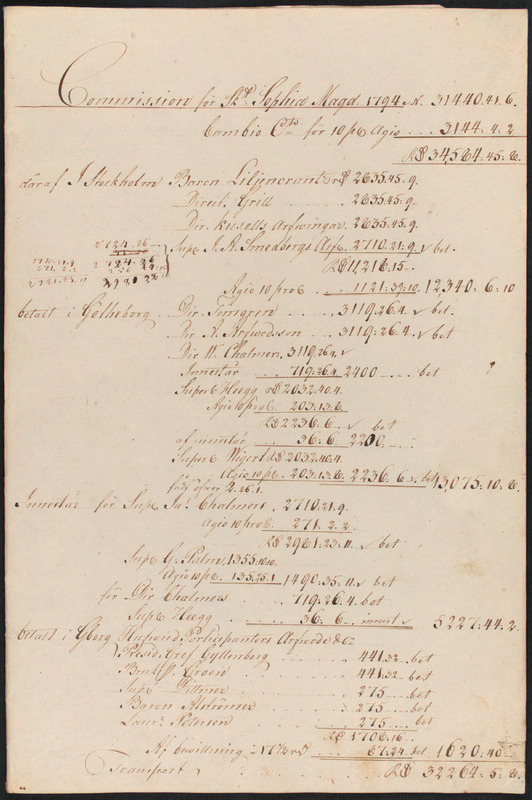 Commission för Skp. Sophia Magd. 1794 31440.41.6.
Cambio Cto för 10 p% Agio . . . 3144. 4. 2
R$ 34,584.45.8.
däraf I Stockholm Baron Liljencrants R$ 2635.45.9.
Direct. Grill . . . . 2635.45.9.
Dir. Arfwingar 2635.45.9.
Sup. J. A. Smedbergs Arf. 2710.21.9. bet.
R$ 11,218.15.
Agio 10 pro% . . . 1121.39.10. 12,340. 6:10
2724.26
2724.26
2981.23.11
betalt i Götheborg Dir Törngren . . . 3119.26.4. bet.
Dir A. Arfwedsson . . 3119:26.4. bet
Dir W. Chalmers 3119.26.4.
Innestår . . . 719:26.4 2400 . . . bet ?
Super% Heegg R$ 2032.40.4.
Agio 10 pro% 203.13.8.
R$ 2236.6 bet
af innestår . . . 36:6. 2200 . . .
Super% R$ 2032.40.4.
Agio 10 p% . 203.13.8. 2236.6 bet 13,075.10.8.
2.26.1.
Innestår för Sup% Ja. Chalmers . 2710.21.9.
Agio 10 pro%. 271. 2.2.
R$ 2981:23.11. bet
Sup% G. Palm 1355.10.10.
Agio 10 p% . 135.25.1 1490.35.11. bet
för Dir Chalmers . . . 719.26.4. bet
Sup% Heegg . . . . 36. 6 . 5227.44.2.
betalt i Gborg Participanters &c:
Presid. Gref Gyllenborg . . . . 441.32 bet
Groen . . . . . 441.32 bet
Sup% Dittmer . . . . . 275 bet
Baron Alströmer . . . . 275 bet
Petersen . . . . . 275 bet
R$ 1708.16
Af bewillning . . . 87.24 bet 1620.40
Transport . . . . . . R$ 32264.5.8.